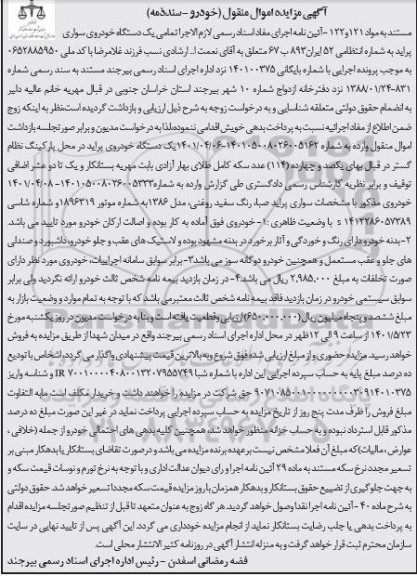 آگهی مزایده اموال منقول (خودرو - سندذمه)
مستند به مواد ۱۲۱ و ۱۲۲ - آئین نامه اجرای مفاد اسناد رسمی لازم الاجرا تمامی یک دستگاه خودروی سواری
پراید به شماره انتظامی ۵۲ ایران ۸۹۳ ب ۶۷ متعلق به آقای نعمت ا... ارشادی نسب فرزند غلامرضا با کد ملی ۰۶۵۲۸۸۵۹۵۰
به موجب پرونده اجرایی با شماره بایگانی ۱۴۰۱۰۰۳۷۵ نزد اداره اجرای اسناد رسمی بیرجند مستند به سند رسمی شماره
۸۳۱-۱۳۸۸/۰۱/۲۴ نزد دفترخانه ازدواج شماره ۱۰ شهر بیرجند استان خراسان جنوبی در قبال مهریه خانم عالیه دلیر
به انضمام حقوق دولتی متعلقه شناسایی و به درخواست زوجه به شرح ذیل ارزیابی و بازداشت گردیده است نظر به اینکه زوج
ضمن اطلاع از مفاد اجرائیه نسبت به پرداخت بدهی خویش اقدامی ننموده لذا به درخواست مدیون و برابر صورتجلسه بازداشت
اموال منقول وارده به شماره ۱۴۰۱۰۵۰۰۸۰۲۶۰۰۵۱۶۲-۱۴۰۱/۰۴/۰۶ یک دستگاه خودروی پراید در محل پارکینگ نظام
گستر در قبال بهای یکصد و چهارده (۱۱۴) عدد سکه کامل طلای بهار آزادی بابت مهریه بستانکار و یک تا دو عشر اضافی
توقیف و برابر نظریه کارشناس رسمی دادگستری طی گزارش وارده به شماره ۱۴۰۱۰۵۰۰۸۰۲۶۰۰۵۳۳۳-۱۴۰۱/۰۴/۰۸
خودروی مذکور با مشخصات سواری پراید صبا، رنگ سفید روغنی، مدل ۱۳۸۶ به شماره موتور ۱۸۹۶۳۱۹ و شماره شاسی
s ۱۴۱۲۲۸۶۰۵۷۳۸۹ با وضعیت ظاهری : ۱- خودروی فوق آماده به کار بوده و اصالت ارکان خودرو مورد تایید می باشد.
۲- بدنه خودرو دارای رنگ و خوردگی و آثار برخورد در بدنه مشهود بوده و لاستیک های عقب و جلو خودرو، داشبورد و صندلی
های جلو و عقب مستعمل و همچنین خودرو دوگانه سوز می باشد ۳- برابر سوابق سامانه اجراییات، خودروی مورد نظر دارای
صورت تخلفات به مبلغ ۲.۹۸۵.۰۰۰ ریال می باشد. ۴- در زمان بازدید بیمه نامه شخص ثالث خودرو ارائه نگردید ولی برابر
سوابق سیستمی خودرو در زمان بازدید فاقد بیمه نامه شخص ثالث معتبر می باشد که با توجه به تمام موارد و وضعیت بازار به
مبلغ ششصد و پنجاه میلیون ریال (۶۵۰.۰۰۰.۰۰۰) ارزیابی و قطعیت یافته است و بنا به درخواست مدیون در روز یکشنبه مورخ
۱۴۰۱/۵/۲۳ از ساعت ۹ الی ۱۲ ظهر در محل اداره اجرای اسناد رسمی بیرجند واقع در میدان شهدا از طریق مزایده به فروش
خواهد رسید. مزایده حضوری و از مبلغ ارزیابی شده فوق شروع و به بالاترین قیمت پیشنهادی واگذار می گردد، اشخاص با تودیع
ده درصد مبلغ پایه به حساب سپرده اجرایی این اداره با شماره شبا IR ۷۰۰۱۰۰۰۰۴۰۸۰۰۱۳۲۰۷۹۵۵۷۴۹ و شناسه واریز
حق شرکت در مزایده را خواهند داشت و خریدار مکلف است مابه التفاوت
مبلغ فروش را ظرف مدت پنج روز از تاریخ مزایده به حساب سپرده اجرایی پرداخت نماید در غیر این صورت مبلغ ده درصد
مذکور قابل استرداد نبوده و به حساب خزانه منظور خواهد شد، همچنین کلیه بدهی های احتمالی خودرو از جمله (خلافی ،
عوارض ، مالیات) که مبلغ آن فعلا مشخص نیست بر عهده برنده مزایده می باشد و در صورت تقاضای بستانکار یا بدهکار مبنی بر
تسعیر مجدد نرخ سکه مستند به ماده ۲۹ آئین نامه اجرا و رای دیوان عدالت اداری و با توجه به نرخ تورم و نوسات قیمت سکه و
به جهت جلوگیری از تضییع حقوق بستانکار و بدهکار همزمان با روز مزایده قیمت سکه مجددا تسعیر خواهد شد. حقوق دولتی
به شرح ماده ۴۰ - آئین نامه اجرا نقدا وصول خواهد گردید. هر گاه زوج به عنوان متعهد تا قبل از تنظیم صورتجلسه مزایده اقدام
به پرداخت بدهی یا جلب رضایت بستانکار نماید از انجام مزایده خودداری می گردد این آگهی پس از تایید نهایی در سایت
سازمان محترم ثبت قرار خواهد گرفت و به منزله انتشار آگهی در روزنامه کثیر الانتشار محلی است.
فضه رمضانی اسفدن - رئیس اداره اجرای اسناد رسمی بیرجند